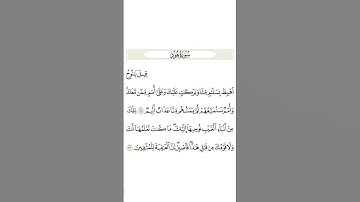 سُورَةُ هُودٍ
قِيلَ يَٰنُوحُ
ٱهْبِطْ بِسَلَٰمٍ مِّنَّا وَبَرَكَٰتٍ عَلَيْكَ وَعَلَىٰٓ أُمَمٍ مِّمَّن مَّعَكَ
وَأُمَمٌ سَنُمَتِّعُهُمْ ثُمَّ يَمَسُّهُم مِّنَّا عَذَابٌ أَلِيمٌ ۝٤٨ تِلْكَ
مِنْ أَنۢبَآءِ ٱلْغَيْبِ نُوحِيهَآ إِلَيْكَ ۖ مَا كُنتَ تَعْلَمُهَآ أَنتَ
وَلَا قَوْمُكَ مِن قَبْلِ هَٰذَا ۖ فَٱصْبِرْ ۖ إِنَّ ٱلْعَٰقِبَةَ لِلْمُتَّقِينَ ۝٤٩